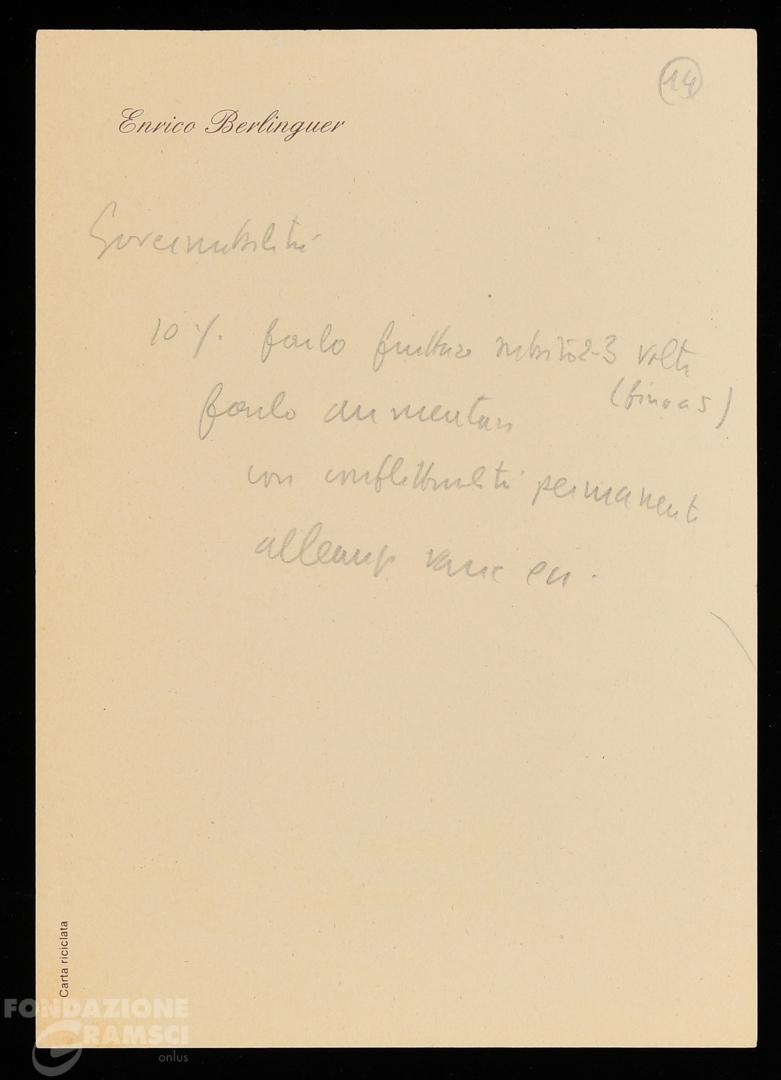 14
Enrico Berlinguer
Governabilità
10%. farlo fruttare subito 2-3 volte
(fino a 5)
farlo aumentare
con conflittualità permanente
alleanze varie
Carta riciclata
FONDAZIONE
GRAMSCI
onlus